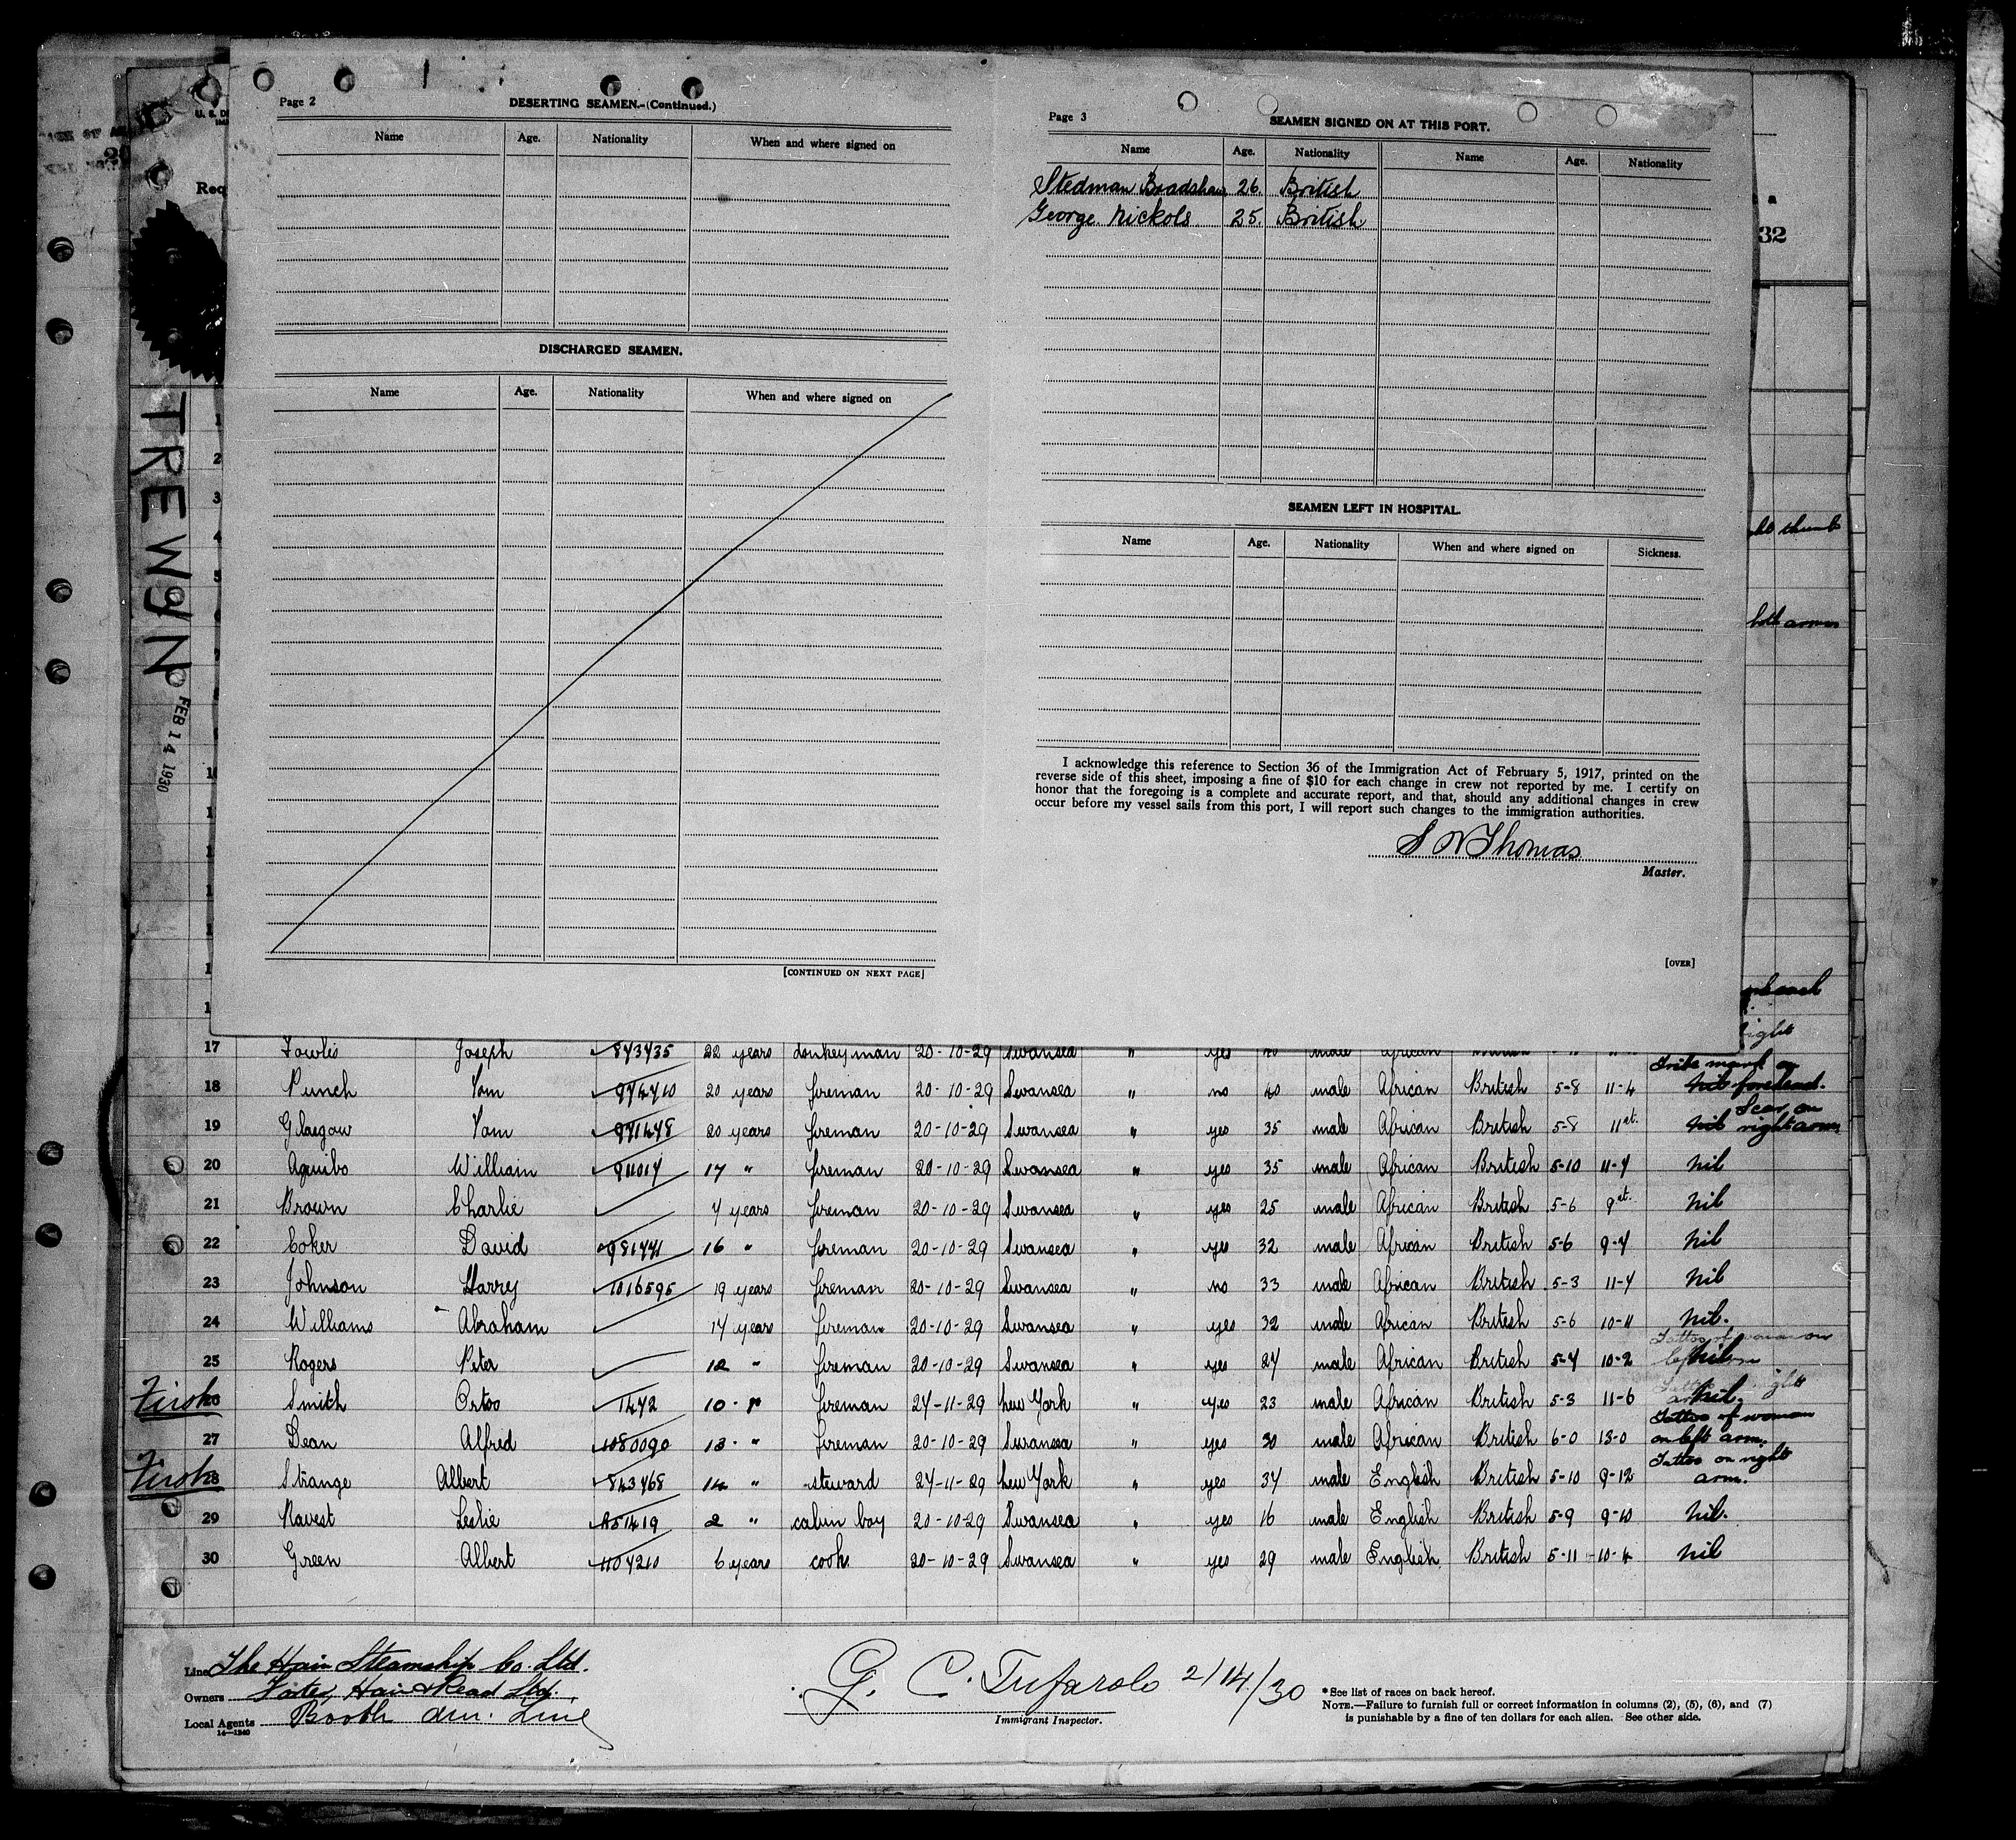 Page 2
DESERTING SEAMEN.-(Continued.)
Name Age. Nationality When and where signed on
DISCHARGED SEAMEN.
Name Age. Nationality When and where signed on
[CONTINUED ON NEXT PAGE]
Page 3
SEAMEN SIGNED ON AT THIS PORT.
Name Age. Nationality Name Age. Nationality
Stedman Bradshaw 26. British
George Nickols 25. British
SEAMEN LEFT IN HOSPITAL.
Name Age. Nationality When and where signed on Sickness.
I acknowledge this reference to Section 36 of the Immigration Act of February 5, 1917, printed on the
reverse side of this sheet, imposing a fine of $10 for each change in crew not reported by me. I certify on
honor that the foregoing is a complete and accurate report, and that, should any additional changes in crew
occur before my vessel sails from this port, I will report such changes to the immigration authorities.
S W Thomas
Master.
[OVER]
Req
32
TREWYN
FEB 14 1930
both arms
17 Fowlis Joseph 843435 22 years donkeyman 20-10-29 Swansea " yes male African
18 Punch Tom 974710 20 years fireman 20-10-29 Swansea " no 40 male African British 5-8 11-4 Tribe mark on forehead.
19 Glasgow Tom 971478 20 years fireman 20-10-29 Swansea " yes 35 male African British 5-8 11st. nil Scar on right arm
20 Aguibo William 911017 17 " fireman 20-10-29 Swansea " yes 35 male African British 5-10 11-4 nil
21 Brown Charlie 4 years fireman 20-10-29 Swansea " yes 25 male African British 5-6 9st. nil
22 Coker David 981441 16 " fireman 20-10-29 Swansea " yes 32 male African British 5-6 9-4 nil
23 Johnson Harry 1016595 19 years fireman 20-10-29 Swansea " no 33 male African British 5-3 11-4 nil
24 Williams Abraham 14 years fireman 20-10-29 Swansea " yes 32 male African British 5-6 10-11 nil.
25 Rogers Peter 12 " fireman 20-10-29 Swansea " yes 24 male African British 5-4 10-2 nil
First 26 Smith Ortoo 1472 10 " fireman 24-11-29 New York " yes 23 male African British 5-3 11-6 nil.
27 Dean Alfred 1080090 13 " fireman 20-10-29 Swansea " yes 30 male African British 6-0 13-0 Tattoo of woman on left arm.
First 28 Strange Albert 843468 14 " steward 24-11-29 New York " yes 34 male English British 5-10 9-12 Tattoo on right arm.
29 Ravest Leslie 851419 2 " cabin boy 20-10-29 Swansea " yes 16 male English British 5-9 9-10 nil.
30 Green Albert 1104210 6 years cook 20-10-29 Swansea " yes 29 male English British 5-11 10-4 nil
Line The Hain Steamship Co. Ltd.
Owners Foster, Hain & Read Ltd.
Local Agents Booth Am. Line
14-1240
G. C. Tufarolo 2/14/30
Immigrant Inspector.
*See list of races on back hereof.
NOTE.—Failure to furnish full or correct information in columns (2), (5), (6), and (7)
is punishable by a fine of ten dollars for each alien. See other side.